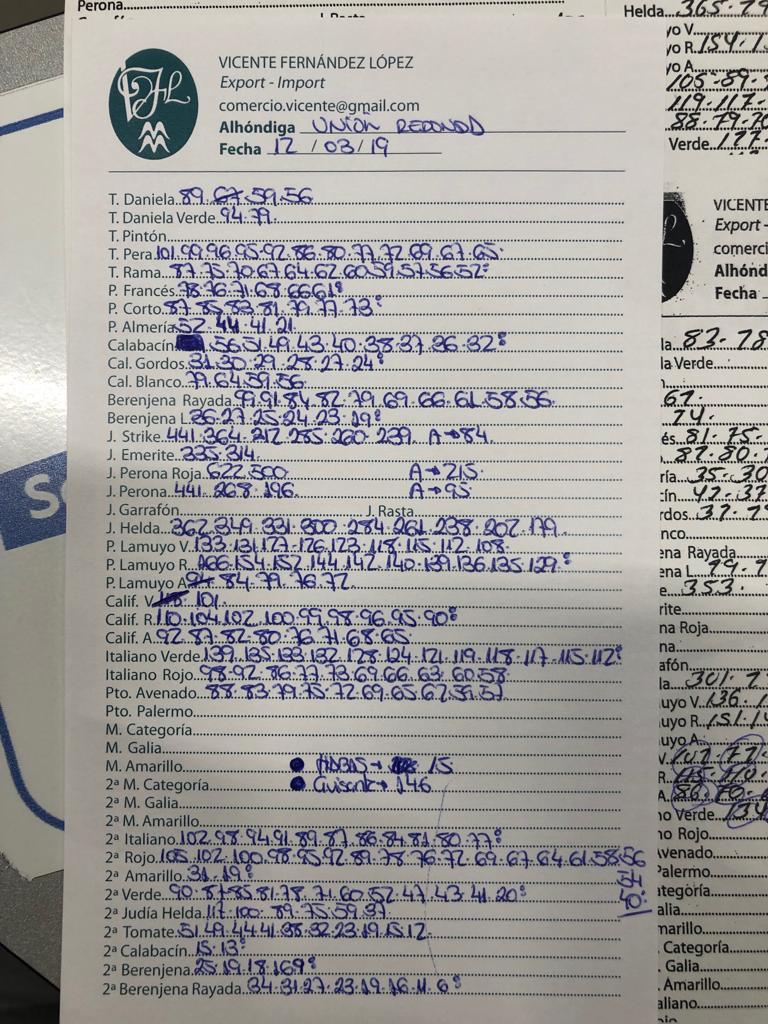 Perona
J. Rasta
VICENTE FERNÁNDEZ LÓPEZ
Export - Import
comercio.vicente@gmail.com
Alhóndiga UNIÓN REDONDO
Fecha 12 / 03 / 19
T. Daniela 89.67.59.56
T. Daniela Verde 94.79.
T. Pintón
T. Pera 101.99.96.95.92.86.80.77.72.69.67.65.
T. Rama 87.75.70.67.64.62.60.59.57.56.52
P. Francés 78.76.71.68.66.61
P. Corto 87.85.83.81.79.77.73
P. Almería 52.44.41.21
Calabacín 56.51.49.43.40.38.37.36.32
Cal. Gordos 31.30.29.28.27.24
Cal. Blanco 79.64.59.56
Berenjena Rayada 99.91.84.82.79.69.66.61.58.56
Berenjena L 36.27.25.24.23.19
J. Strike 441.364.285.260.239. A→84.
J. Emerite 335.314.
J. Perona Roja 622.500 A→215.
J. Perona 441.268.196. A→95
J. Garrafón J. Rasta
J. Helda 362.349.331.300.284.261.238.202.179.
P. Lamuyo V. 133.131.127.126.123.118.115.112.108.
P. Lamuyo R. 166.154.152.144.142.140.139.136.135.129
P. Lamuyo A 84.79.76.72
Calif. V. 101.
Calif. R. 110.104.102.100.99.98.96.95.90
Calif. A. 92.87.82.80.76.71.68.65
Italiano Verde 139.135.133.132.128.124.121.119.118.117.115.112
Italiano Rojo 98.92.86.77.73.69.66.63.60.58
Pto. Avenado 88.83.79.75.72.69.65.62.59.57
Pto. Palermo
M. Categoría
M. Galia
M. Amarillo HABAS→ 15
2ª M. Categoría Guisante→ 146
2ª M. Galia
2ª M. Amarillo
2ª Italiano 102.98.94.91.89.87.86.84.81.80.77
2ª Rojo 105.102.100.98.95.92.89.78.76.72.69.67.64.61.58.56
54.50
2ª Amarillo 31.19
2ª Verde 90.87.85.81.78.71.60.52.47.43.41.20
2ª Judía Helda 117.100.89.75.59.37
2ª Tomate 51.49.44.41.38.32.23.19.15.12
2ª Calabacín 15.13
2ª Berenjena 25.19.18.16.9
2ª Berenjena Rayada 34.31.27.23.19.16.11.6
Helda
Verde
VICENTE
Export -
comerci
Alhónd
Fecha
la 83.78
la Verde
67.
74.
és 81.75.
87.80.
ría 35.30
cín 42.37
dos
nco
ena Rayada
ena L 79.
353.
rite
na Roja
na
afón
la 301.
uyo V. 136.
uyo R. 151.
uyo A.
Verde
no Rojo
venado
Palermo
ategoría
alia
marillo
. Categoría
. Galia
. Amarillo
aliano